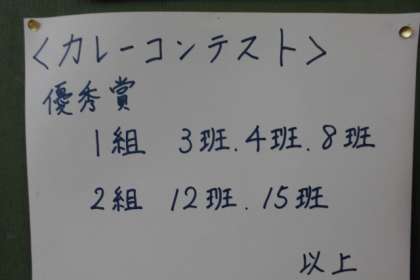 <カレーコンテスト>
優秀賞
1組 3班.4班.8班
2組 12班.15班
以上